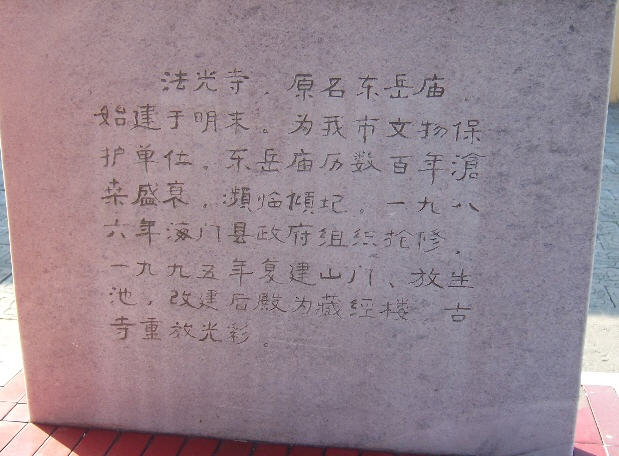 法光寺，原名东岳庙，
始建于明末。为我市文物保
护单位。东岳庙历数百年滄
桑盛衰，瀕临傾圮。一九八
六年海门县政府组织抢修，
一九九五年复建山门、放生
池，改建后殿为藏經楼，古
寺重放光彩。